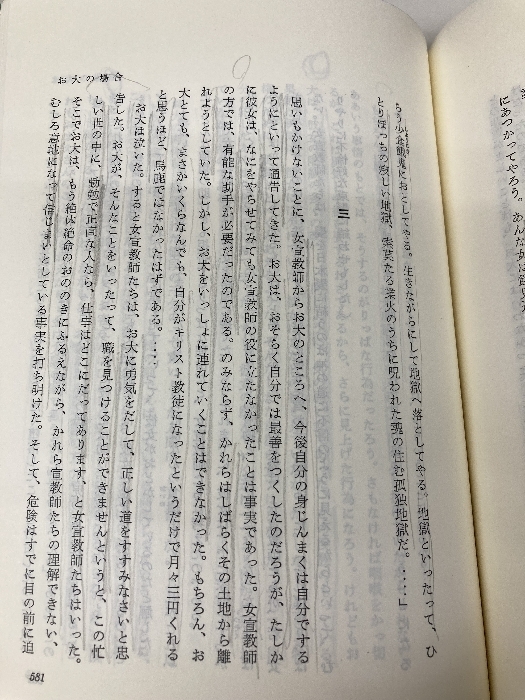 お大の場合
におとしてやる。生きながらにして地獄へ落としてやる。地獄といったって、ひ
とりぼっちの寂しい地獄、索莫たる業火のうちに呪われた魂の住む孤独地獄だ。‥‥」
三
思いもかけないことに、女宣教師からお大のところへ、今後自分の身じんまくは自分でする
ようにといって通告してきた。お大は、おそらく自分では最善をつくしたのだろうが、たしか
に彼女は、なにをやらせてみても女宣教師の役に立たなかったことは事実であった。女宣教師
の方では、有能な助手が必要だったのである。のみならず、かれらはしばらくその土地から離
れようとしていた。しかし、お大をいっしょに連れていくことはできなかった。もちろん、お
大とても、まさかいくらなんでも、自分がキリスト教徒になったというだけで月々三円くれる
と思うほど、馬鹿ではなかったはずである。‥‥
お大は泣いた。すると女宣教師たちは、お大に勇気をだして、正しい道をすすみなさいと忠
告した。お大が、そんなことをいったって、職を見つけることができませんというと、この忙
しい世の中に、勤勉で正直な人なら、仕事はどこにだってあります、と女宣教師たちはいった。
そこでお大は、もう絶体絶命のおののきにふるえながら、かれら宣教師たちの理解できない、
むしろ意地になって信じまいとしている事実を打ち明けた。そして、危険はすでに目の前に迫
581
にあつかってやろう。あんな